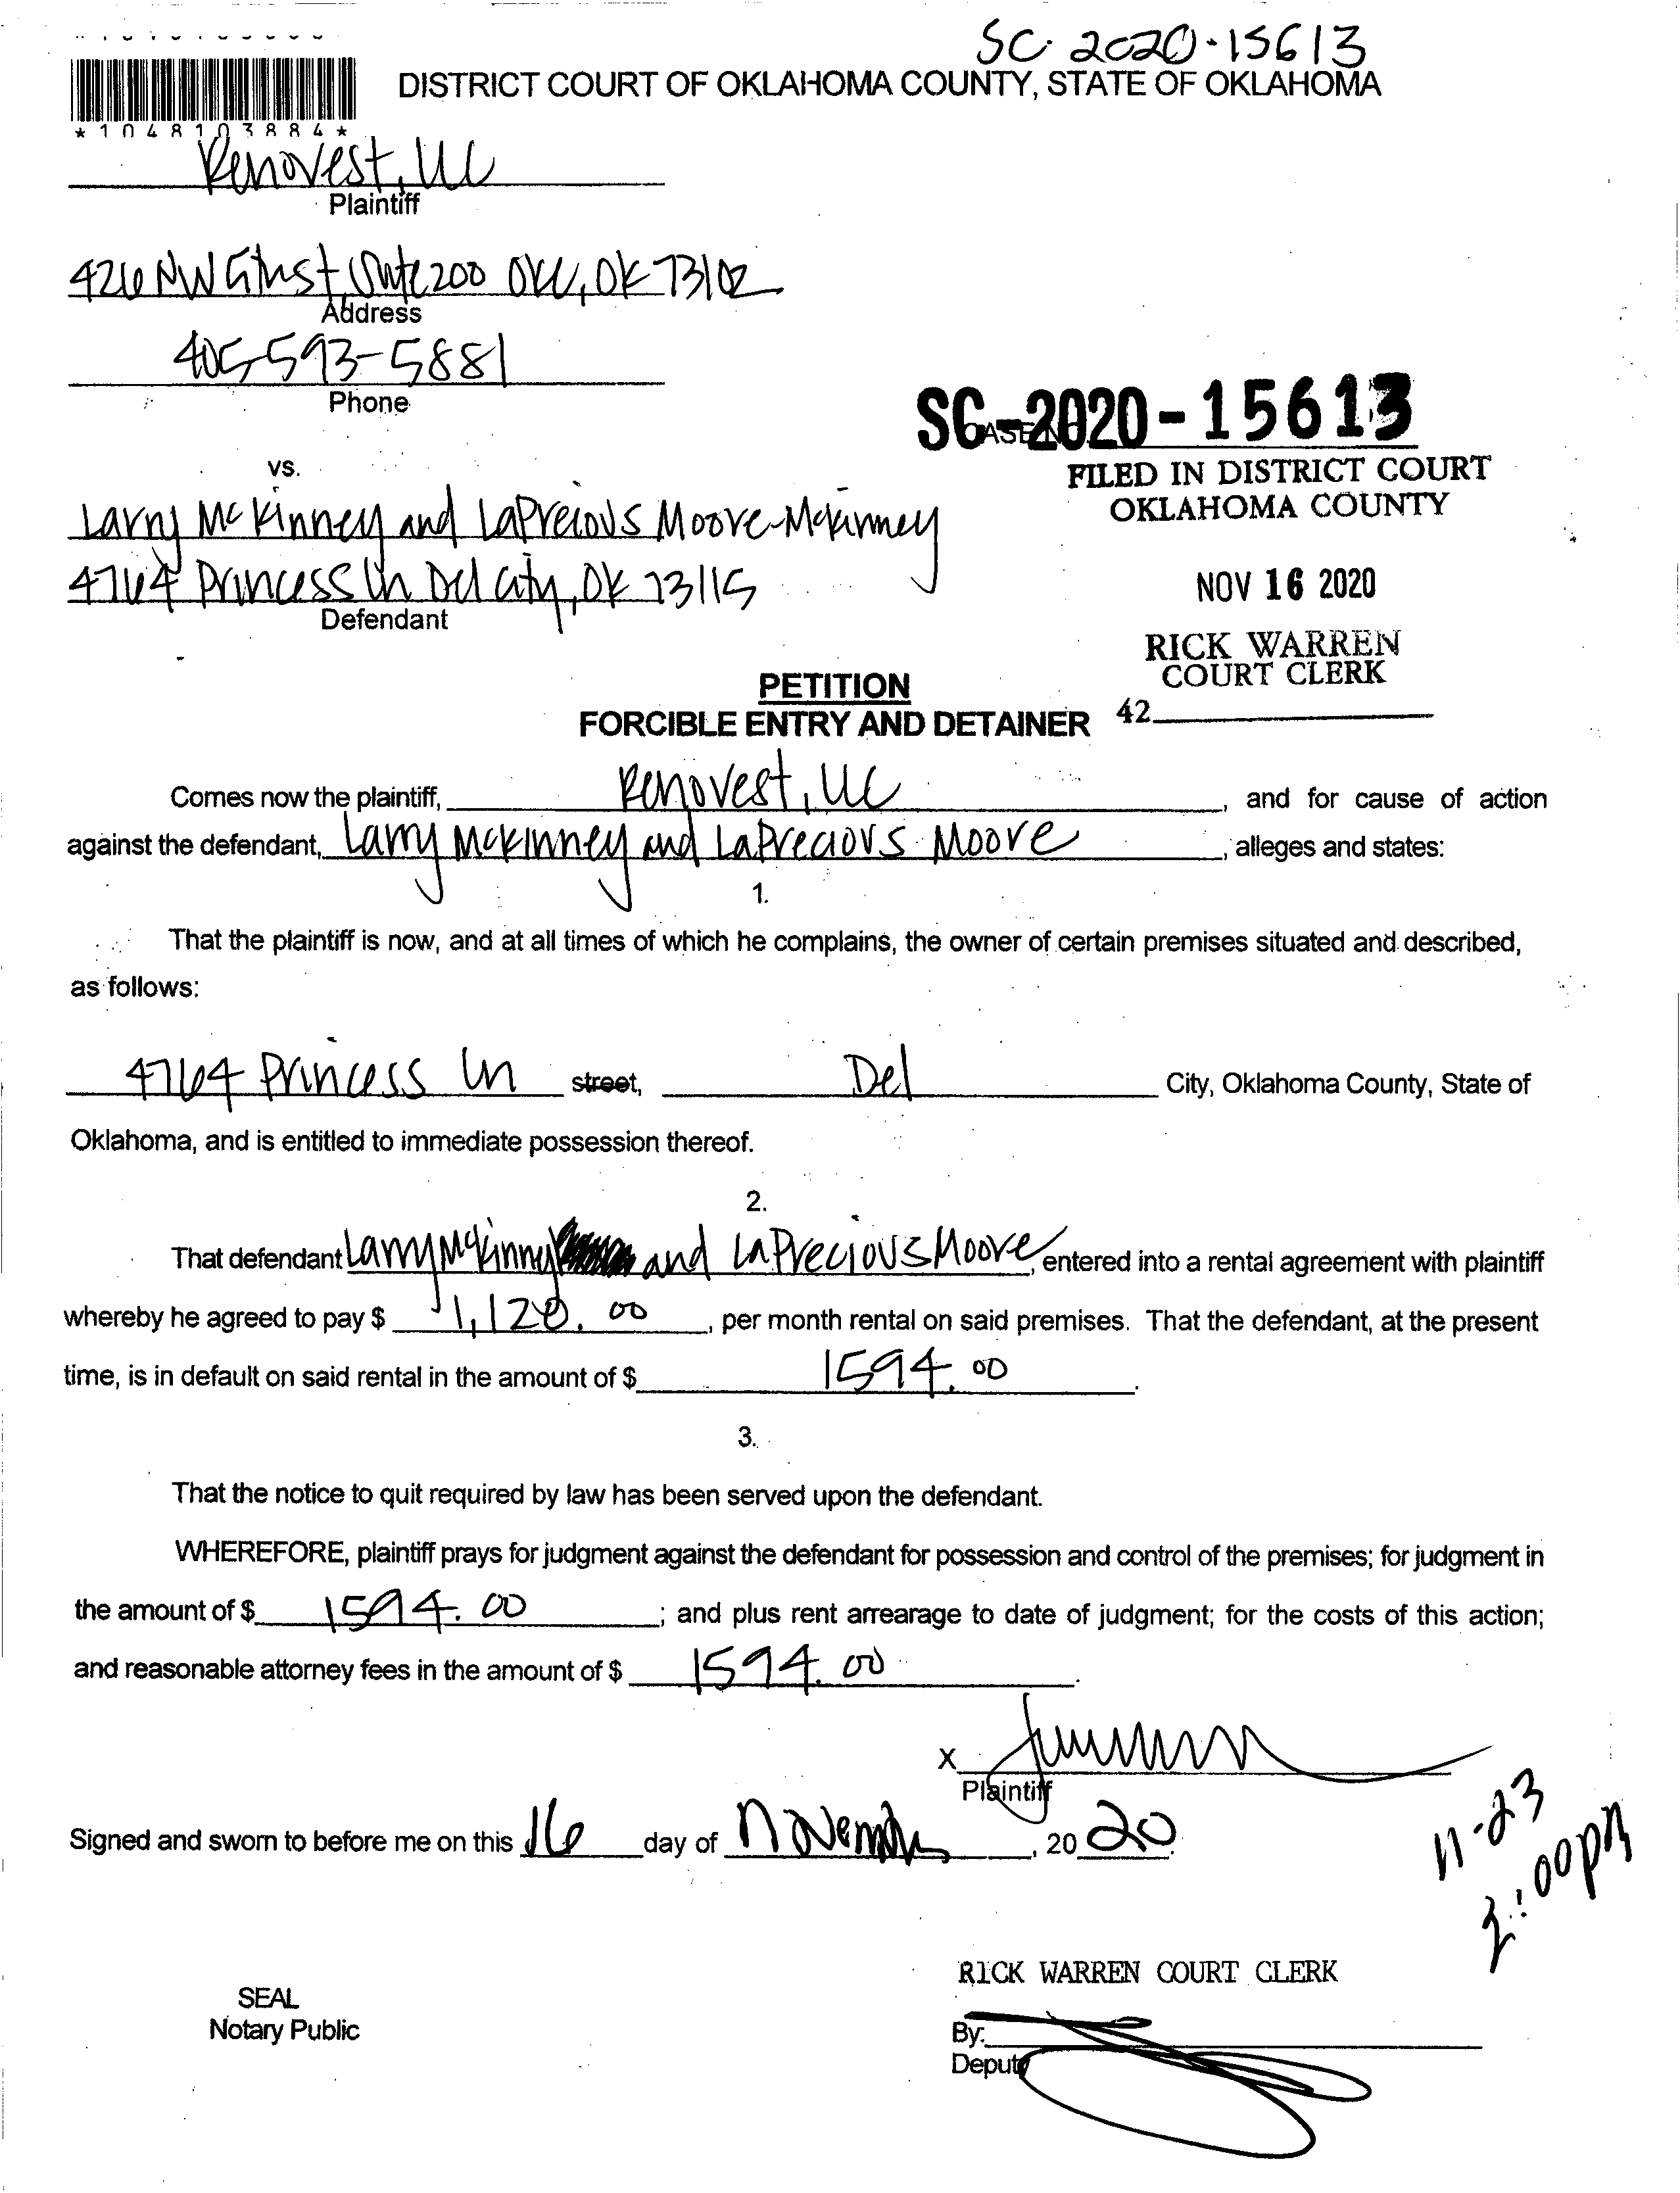 SC-2020-15613
DISTRICT COURT OF OKLAHOMA COUNTY, STATE OF OKLAHOMA
*1048103884*
Renovest, LLC
Plaintiff
426 NW 5th St Suite 200 OKC, OK 73102
Address
405-593-5881
Phone
SC-2020-15613
FILED IN DISTRICT COURT
OKLAHOMA COUNTY
vs.
Larry McKinney and LaPrecious Moore-McKinney
4764 Princess Ln Del City, OK 73115
Defendant
NOV 16 2020
RICK WARREN
COURT CLERK
42
PETITION
FORCIBLE ENTRY AND DETAINER
Comes now the plaintiff, Renovest, LLC, and for cause of action
against the defendant, Larry McKinney and LaPrecious Moore, alleges and states:
1.
That the plaintiff is now, and at all times of which he complains, the owner of certain premises situated and described,
as follows:
4764 Princess Ln street, Del City, Oklahoma County, State of
Oklahoma, and is entitled to immediate possession thereof.
2.
That defendant Larry McKinny and LaPrecious Moore, entered into a rental agreement with plaintiff
whereby he agreed to pay $ 1,120.00, per month rental on said premises. That the defendant, at the present
time, is in default on said rental in the amount of $ 1594.00.
3.
That the notice to quit required by law has been served upon the defendant.
WHEREFORE, plaintiff prays for judgment against the defendant for possession and control of the premises; for judgment in
the amount of $ 1594.00; and plus rent arrearage to date of judgment; for the costs of this action;
and reasonable attorney fees in the amount of $ 1594.00.
X
Plaintiff
Signed and sworn to before me on this 16 day of November, 2020.
11-23
2:00pm
RICK WARREN COURT CLERK
SEAL
Notary Public
By:
Deputy